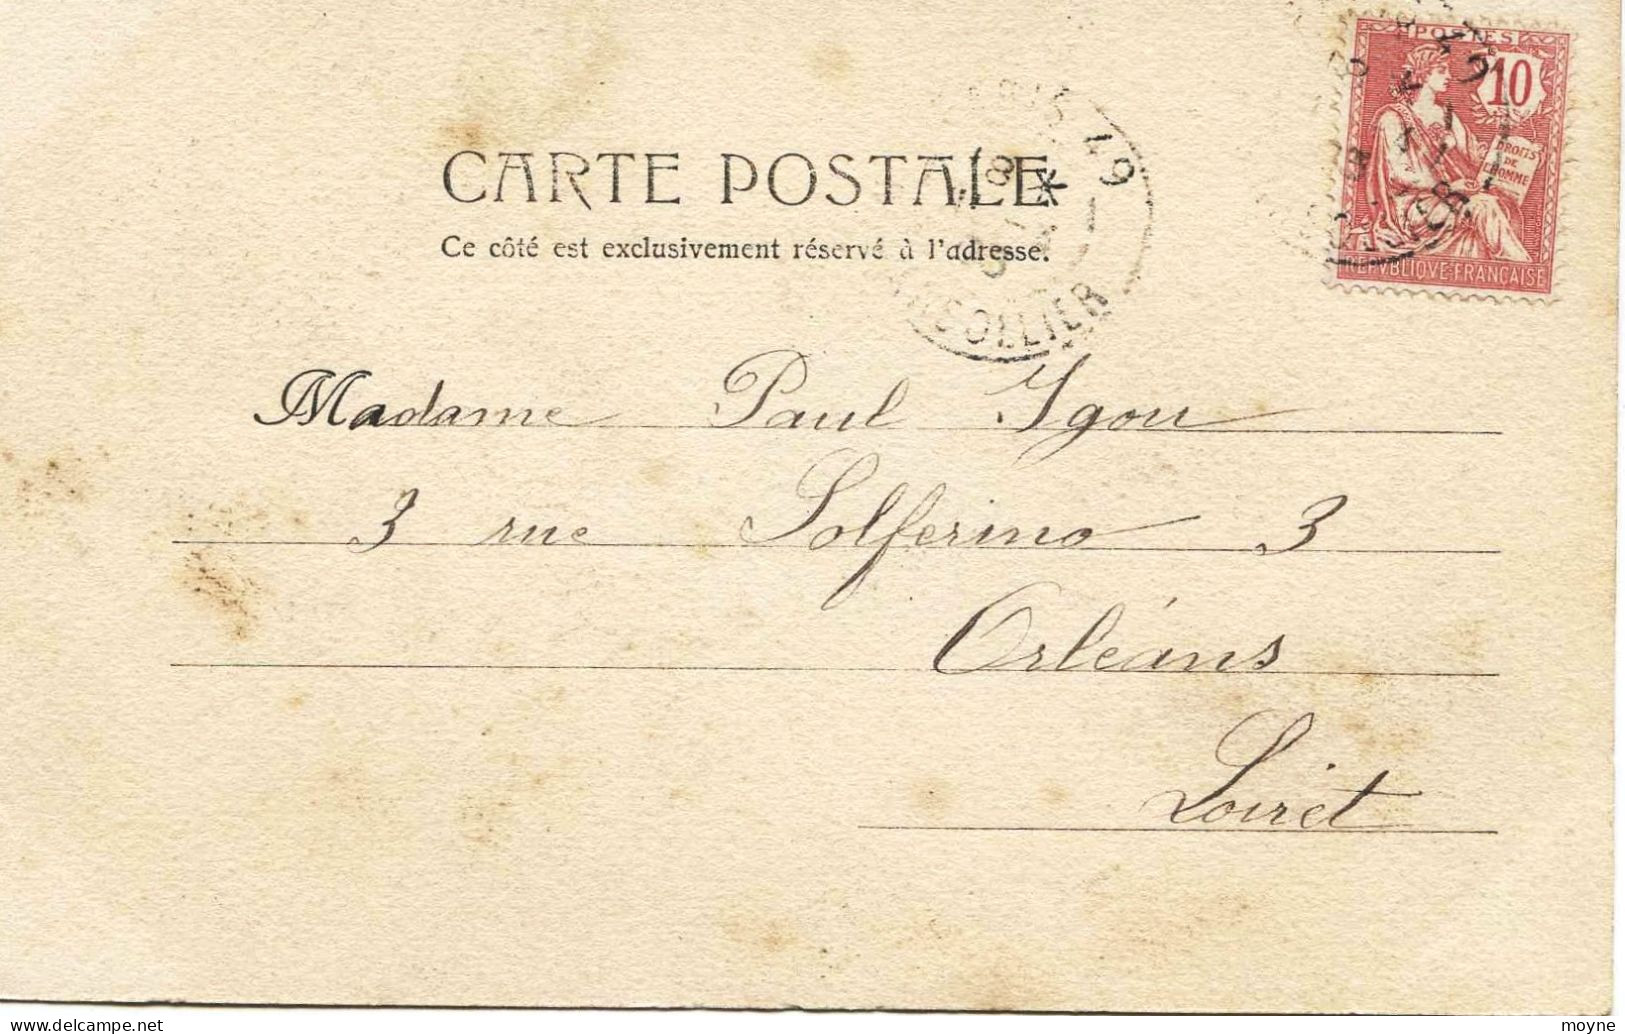 POSTES
10
DROITS
DE
HOMME
REPVBLIQVE FRANÇAISE
CARTE POSTALE
Ce côté est exclusivement réservé à l'adresse.
Madame Paul Igou
3 rue Solferino 3
Orléans
Loiret
delcampe.net
moyne